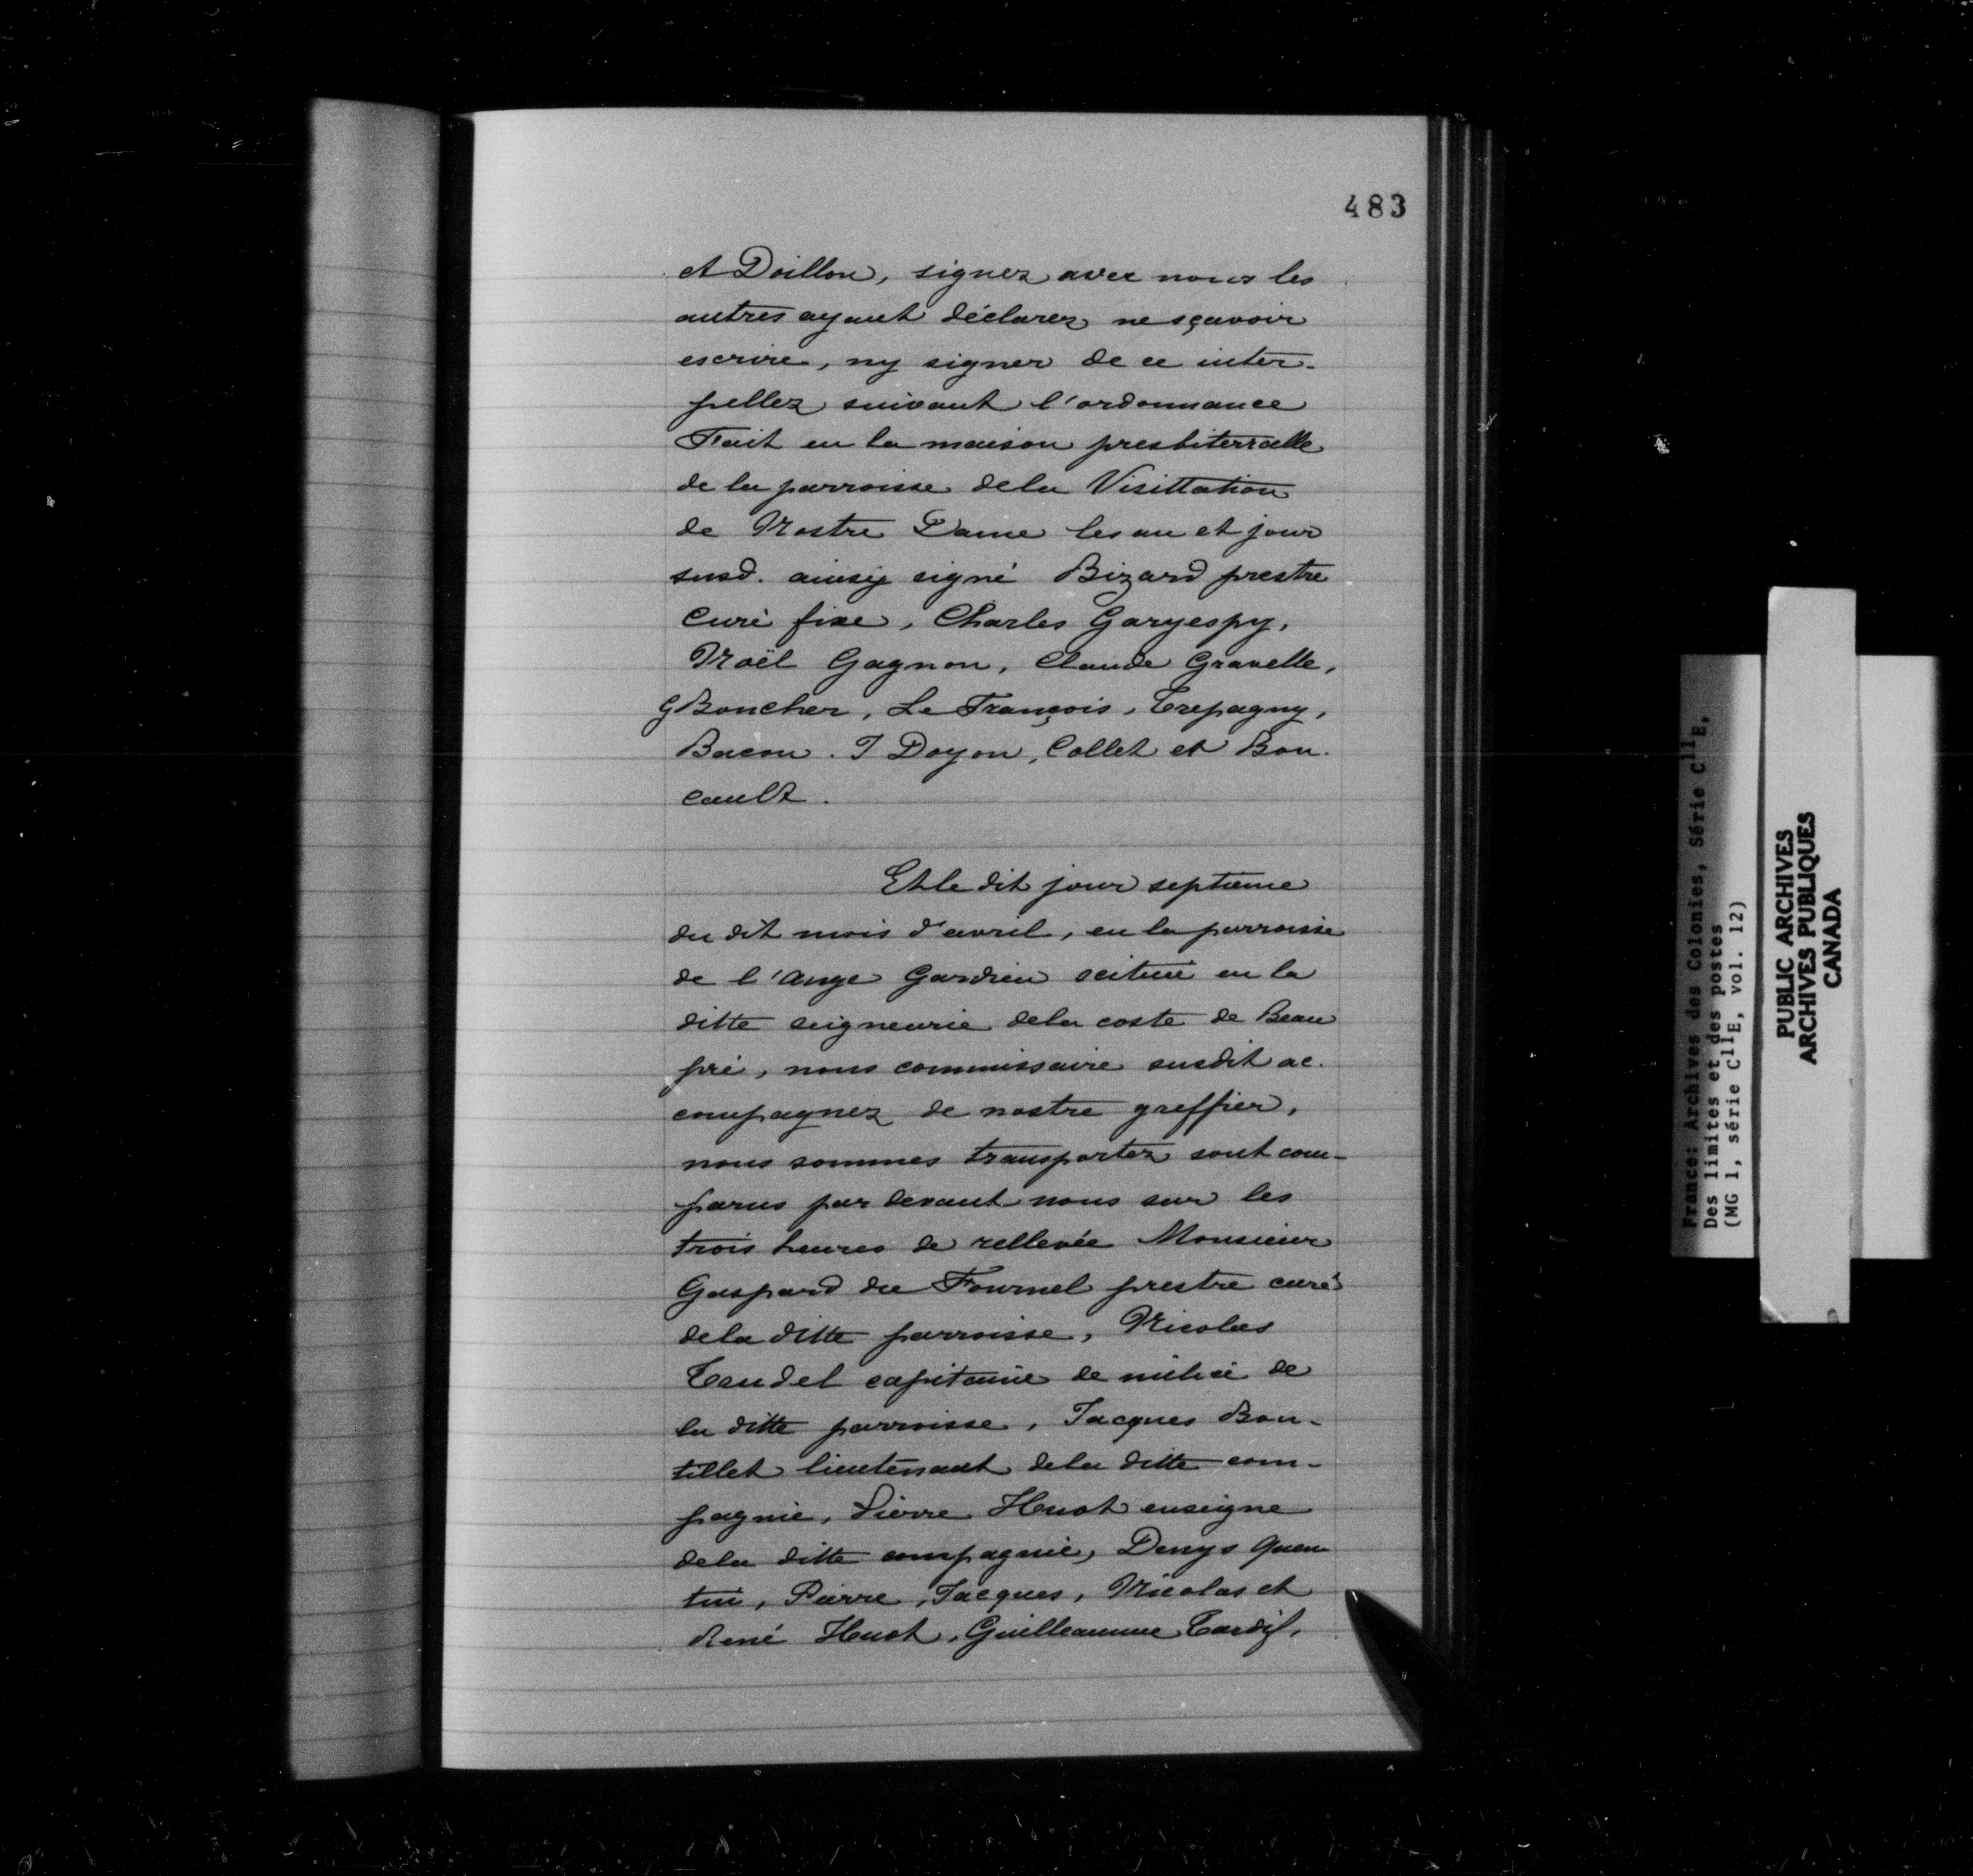 483
et Doillon, signez avec nous les
autres ayant déclarez ne sçavoir
escrire, ny signer de ce inter-
pellez suivant l'ordonnance
Fait en la maison presbiterralle
de la parroisse dela Visittation
de Nostre Dame les an et jour
susd. ainsy signé Bizard prestre
Curé fixe, Charles Garyespy,
Noël Gagnon, Claude Gravelle,
G Boucher, Le François, Trepagny,
Bacon. J Doyon, Collet et Bou-
cault.
Et le dit jour septième
du dit mois d'avril, en la parroisse
de l'Ange Gardien scitué en la
ditte seigneurie dela coste de Beau
pré, nous commissaire susdit ac-
compagnez de nostre greffier,
nous sommes transportez sont com-
parus par devant nous sur les
trois heures de rellevée Monsieur
Gaspard du Fournel prestre curé
dela ditte parroisse, Nicolas
Trudel capitaine de milice de
la ditte parroisse, Jacques Bou-
tillet lieutenant dela ditte com-
pagnie, Pierre Huot enseigne
dela ditte compagnie, Denys Quen
tin, Pierre, Jacques, Nicolas et
René Huot, Guilleaume Tardif,
France: Archives des Colonies, Série C11E,
Des limites et des postes
(MG 1, série C11E, vol. 12)
PUBLIC ARCHIVES
ARCHIVES PUBLIQUES
CANADA